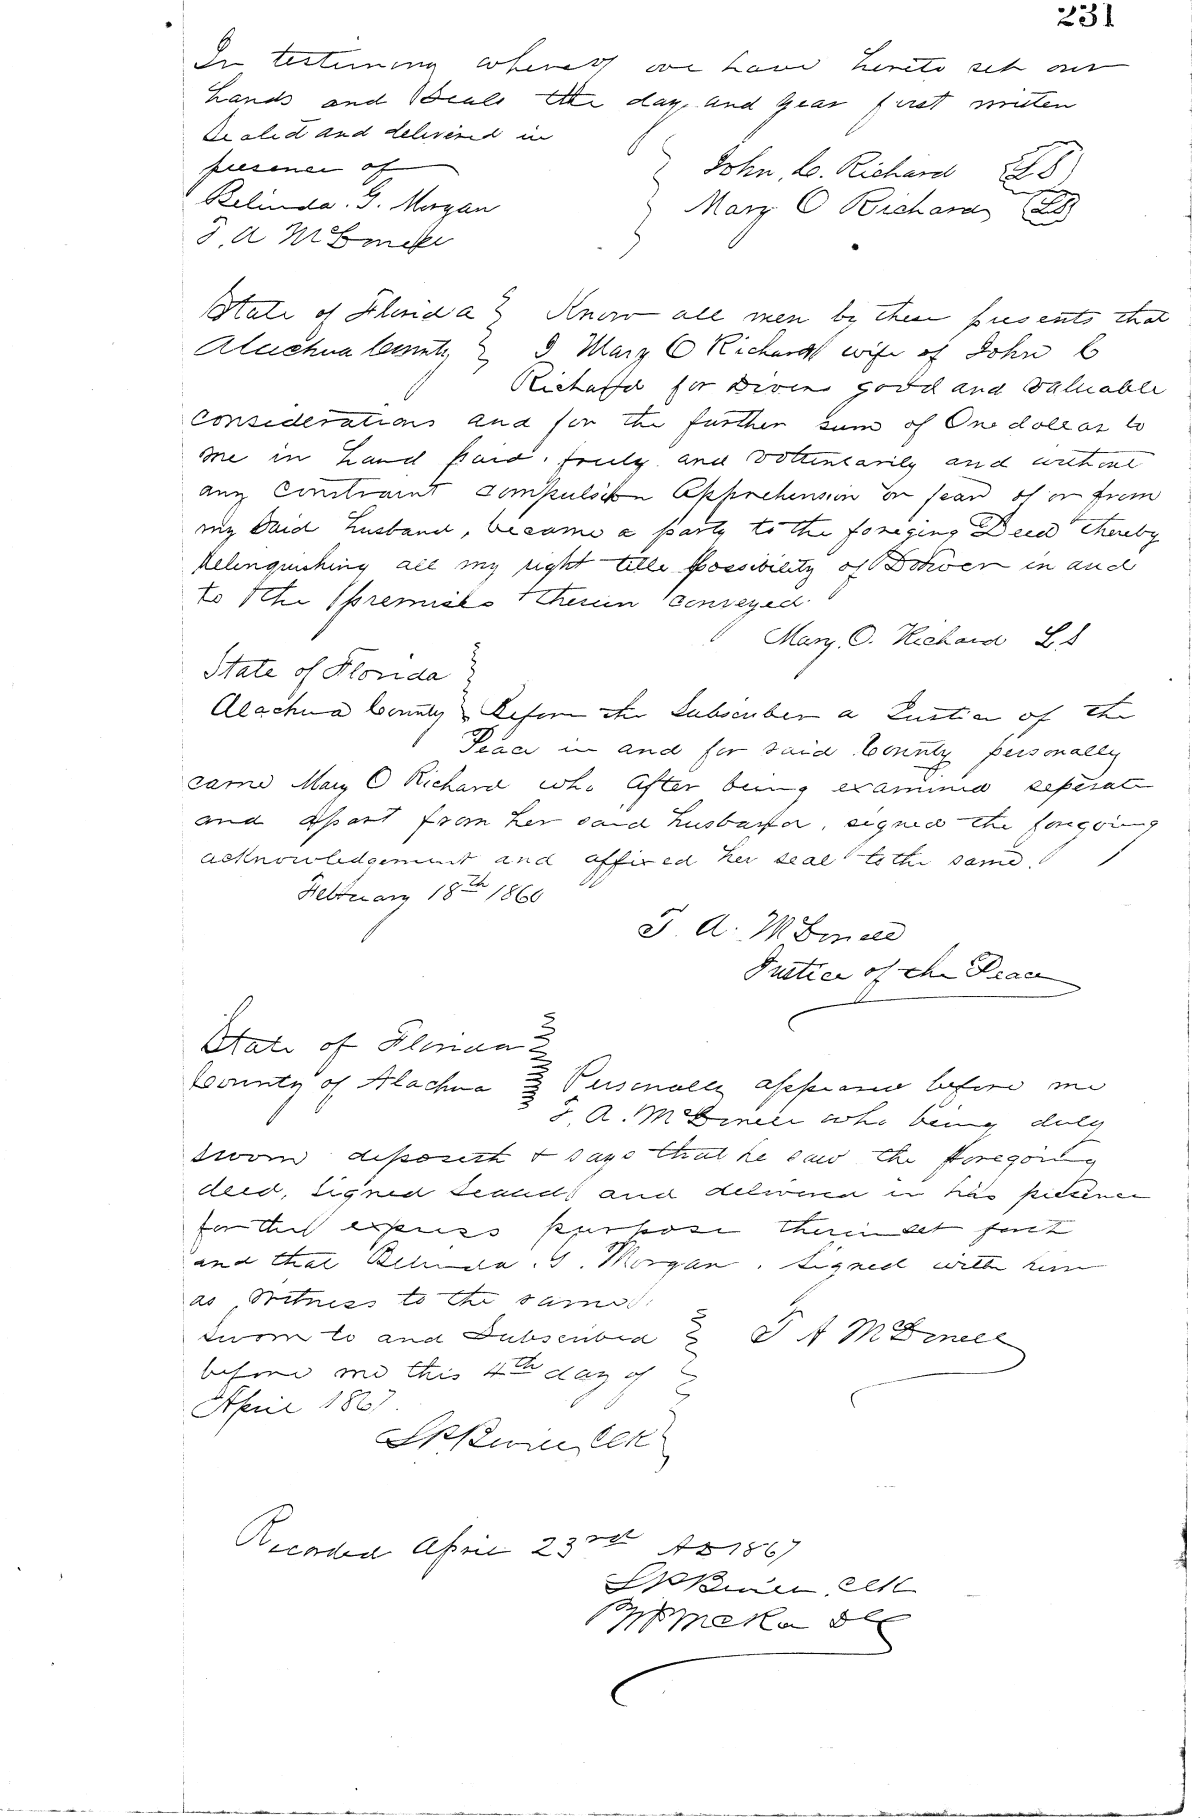 231
In testimony whereof we have hereto set our
hands and Seals the day and year first written
Sealed and delivered in
presence of
John. C. Richard (LS)
Belinda. G. Morgan
Mary O Richard (LS)
T. A McDonell
State of Florida } Know all men by these presents that
Alachua County } I Mary O Richard wife of John C
Richard for Divers good and valuable
considerations and for the further sum of One dollar to
me in hand paid. freely and volluntarily and without
any constraint compulsion Apprehension or fear of or from
my Said husband, became a party to the foreging Deed thereby
Relinquishing all my right title possibility of Dower in and
to the premises therein conveyed.
Mary. O. Richard L S
State of Florida }
Alachua County } Before the Subscriber a Justice of the
Peace in and for said County personally
came Mary O Richard who After being examined seperate
and apart from her said husband, signed the foregoing
acknowledgement and affixed her seal to the same.
February 18th 1860
T. A. McDonell
Justice of the Peace
State of Florida }
County of Alachua } Personally appeared before me
T. A. McDonell who being duly
sworn deposeth & says that he saw the foregoing
deed, signed sealed and delivered in his presence
for the express purpose therein set forth
and that Belinda. G. Morgan. signed with him
as Witness to the same.
Sworn to and Subscribed } T A McDonell
before me this 4th day of
April 1867.
Clk
Recorded April 23rd AD 1867
Clk
DC